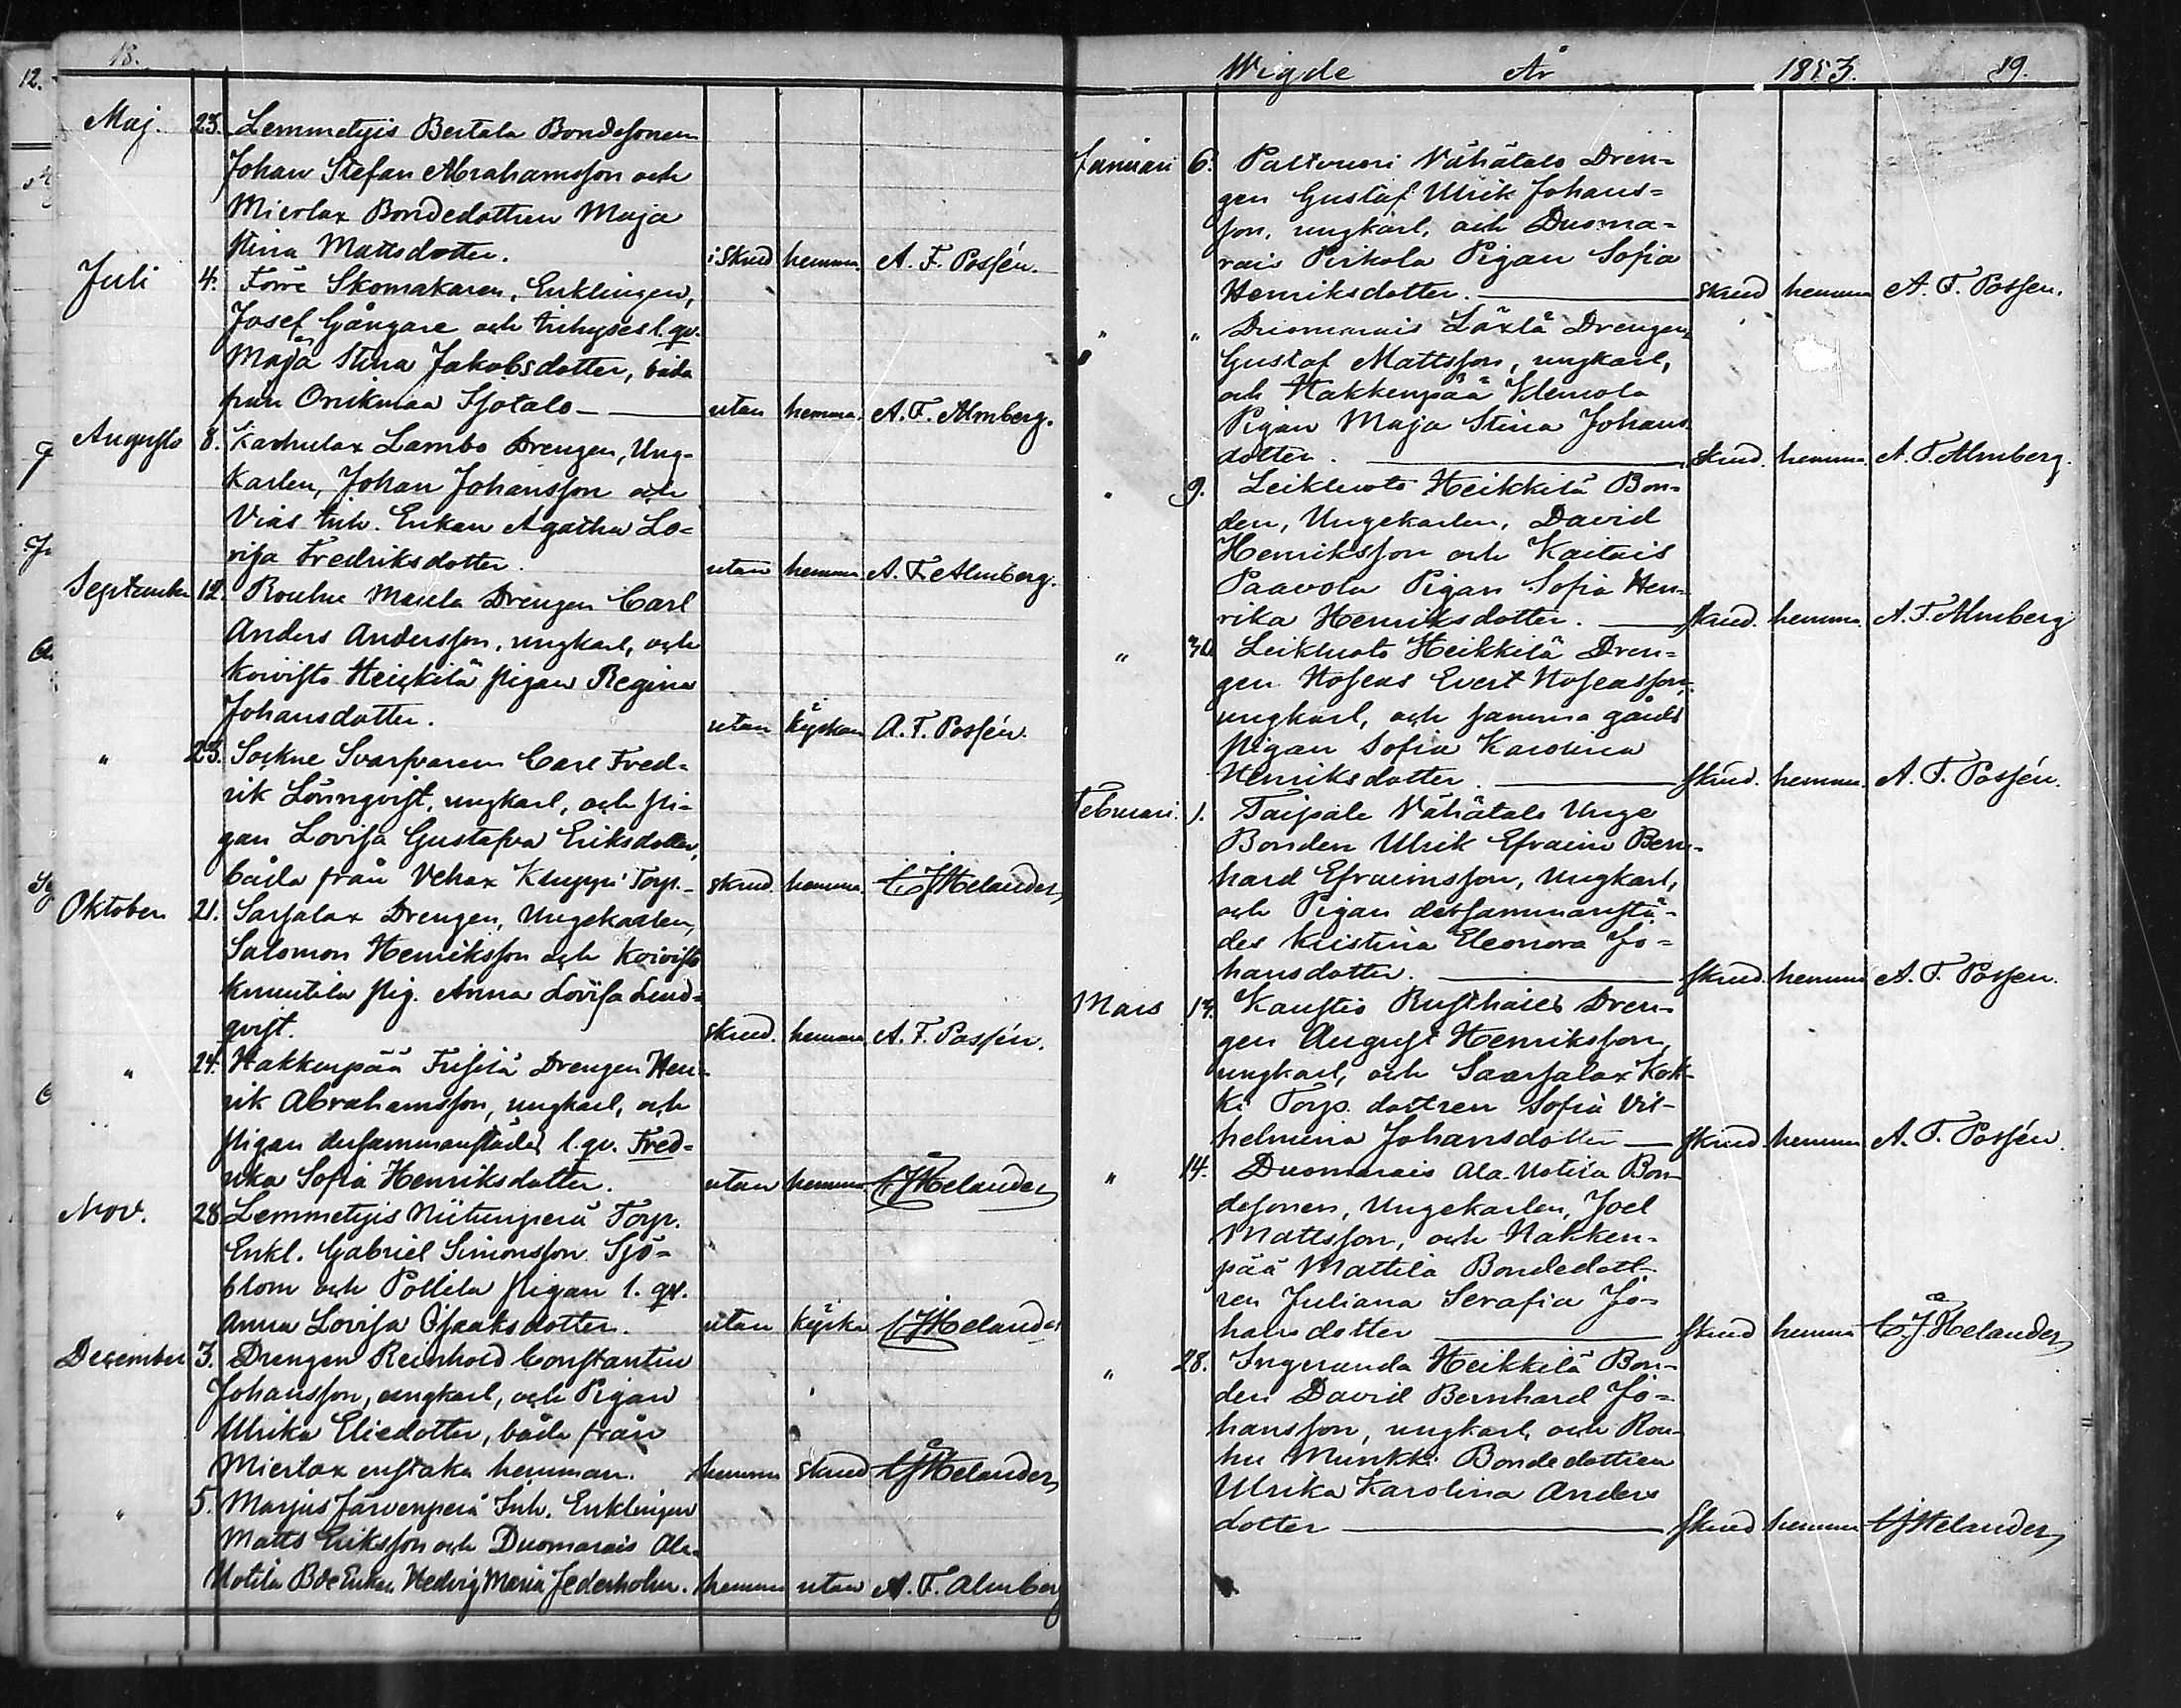 18.
Maj. 23. Lemmetyis Bertala Bondesonen
Johan Stefan Abrahamsson och
Mierlax Bondedottren Maja
Stina Mattsdotter. i skrud hemma. A. F. Possén.
Juli 4. Förre Skomakaren, Enklingen,
Josef Gångare och inhyses l. qv.
Maja Stina Jakobsdotter, båda
från Orikmaa Isotalo — utan hemma. A. F. Almberg.
Augusto 8. Lambo Drengen, Ung-
karlen, Johan Johansson och
Vias Inh. Enkan Agatha Lo-
visa Fredriksdotter. utan hemma A. F. Almberg.
September 12. Rouhu Masila Drengen Carl
Anders Andersson, ungkarl, och
Koivisto Heickilä pigan Regina
Johansdotter. utan kyrkan A. F. Possén.
" 23. Sockne Svarfvaren Carl Fred-
rik Lönnqvist, ungkarl, och pi-
gan Lovisa Gustafva Eriksdotter,
båda från Vehax Kluppi Torp.- skrud. hemma. C J Helander
Oktober 21. Sarsalax Drengen, Ungekarlen,
Salomon Henriksson och Koivisto
Knuutila pig. Anna Lovisa Lind-
qvist. skrud. hemma A. F. Possén.
" 24. Hakkenpää Drengen Hen-
rik Abrahamsson, ungkarl, och
pigan dersammanstädes l. qv. Fred-
rika Sofia Henriksdotter. utan hemma C J Helander
Nov. 28. Lemmetyis Niitunperä Torp.
Enkl. Gabriel Simonsson Sjö-
blom och Pollila pigan l. qv.
Anna Lovisa Isaaksdotter. utan kyrka C J Helander
December 3. Drengen Reinhold Constantin
Johansson, ungkarl, och Pigan
Ulrika Eliedotter, båda från
Mierlax enstaka hemman. hemma skrud C J Helander
" 5. Marjus Järvenperä Inh. Enklingen
Matts Eriksson och Duomarais Ala-
Uotila Bde Enkan Hedvig Maria Jederholm. hemma utan A. F. Almberg
Wigde År 1853. 19.
Januari 6. Paltvuori Vähätalo Dren-
gen Gustaf Ulrik Johans-
son, ungkarl, och Duoma-
rais Pirkola Pigan Sofia
Henriksdotter. — skrud hemma A. F. Possén.
" " Duomarais Läxlä Drengen,
Gustaf Mattsson, ungkarl,
och Hakkenpää Klemola
Pigan Maja Stina Johans
dotter. — skrud. hemma. A. F. Almberg.
" 9. Leikluoto Heikkilä Bon-
den, Ungekarlen, David
Henriksson och Kaitais
Paavola Pigan Sofia Hen-
rika Henriksdotter. — skrud. hemma. A. F. Almberg
" 30 Leikluoto Heikkilä Dren-
gen Hoseas Evert Hoseasson,
ungkarl, och samma gårds
Pigan Sofia Karolina
Henriksdotter. — skrud. hemma. A. F. Possén.
Februari. 1. Taipale Vähätalo Unge
Bonden Ulrik Efraim Bern-
hard Efraimsson, Ungkarl,
och Pigan dersammanstä-
des Kristina Eleonora Jo-
hansdotter. — skrud. hemma A. F. Possen.
Mars 13. Kaustio Rusthålls Dren-
gen August Henriksson,
ungkarl, och Saarsalax Kok-
ki Torp. dottren Sofia Vil-
helmina Johansdotter — skrud hemma A. F. Possén.
" 14. Duomarais Ala-Uotila Bon-
desonen, Ungekarlen, Joel
Mattsson, och Hakken-
pää Mattila Bondedott-
ren Juliana Serafia Jo-
hansdotter — skrud hemma C J Helander
" 28. Ingeranda Heikkilä Bon-
den David Bernhard Jo-
hansson, ungkarl, och Rou-
hu Munkki Bondedottren
Ulrika Karolina Anders
dotter — skrud hemma C J Helander